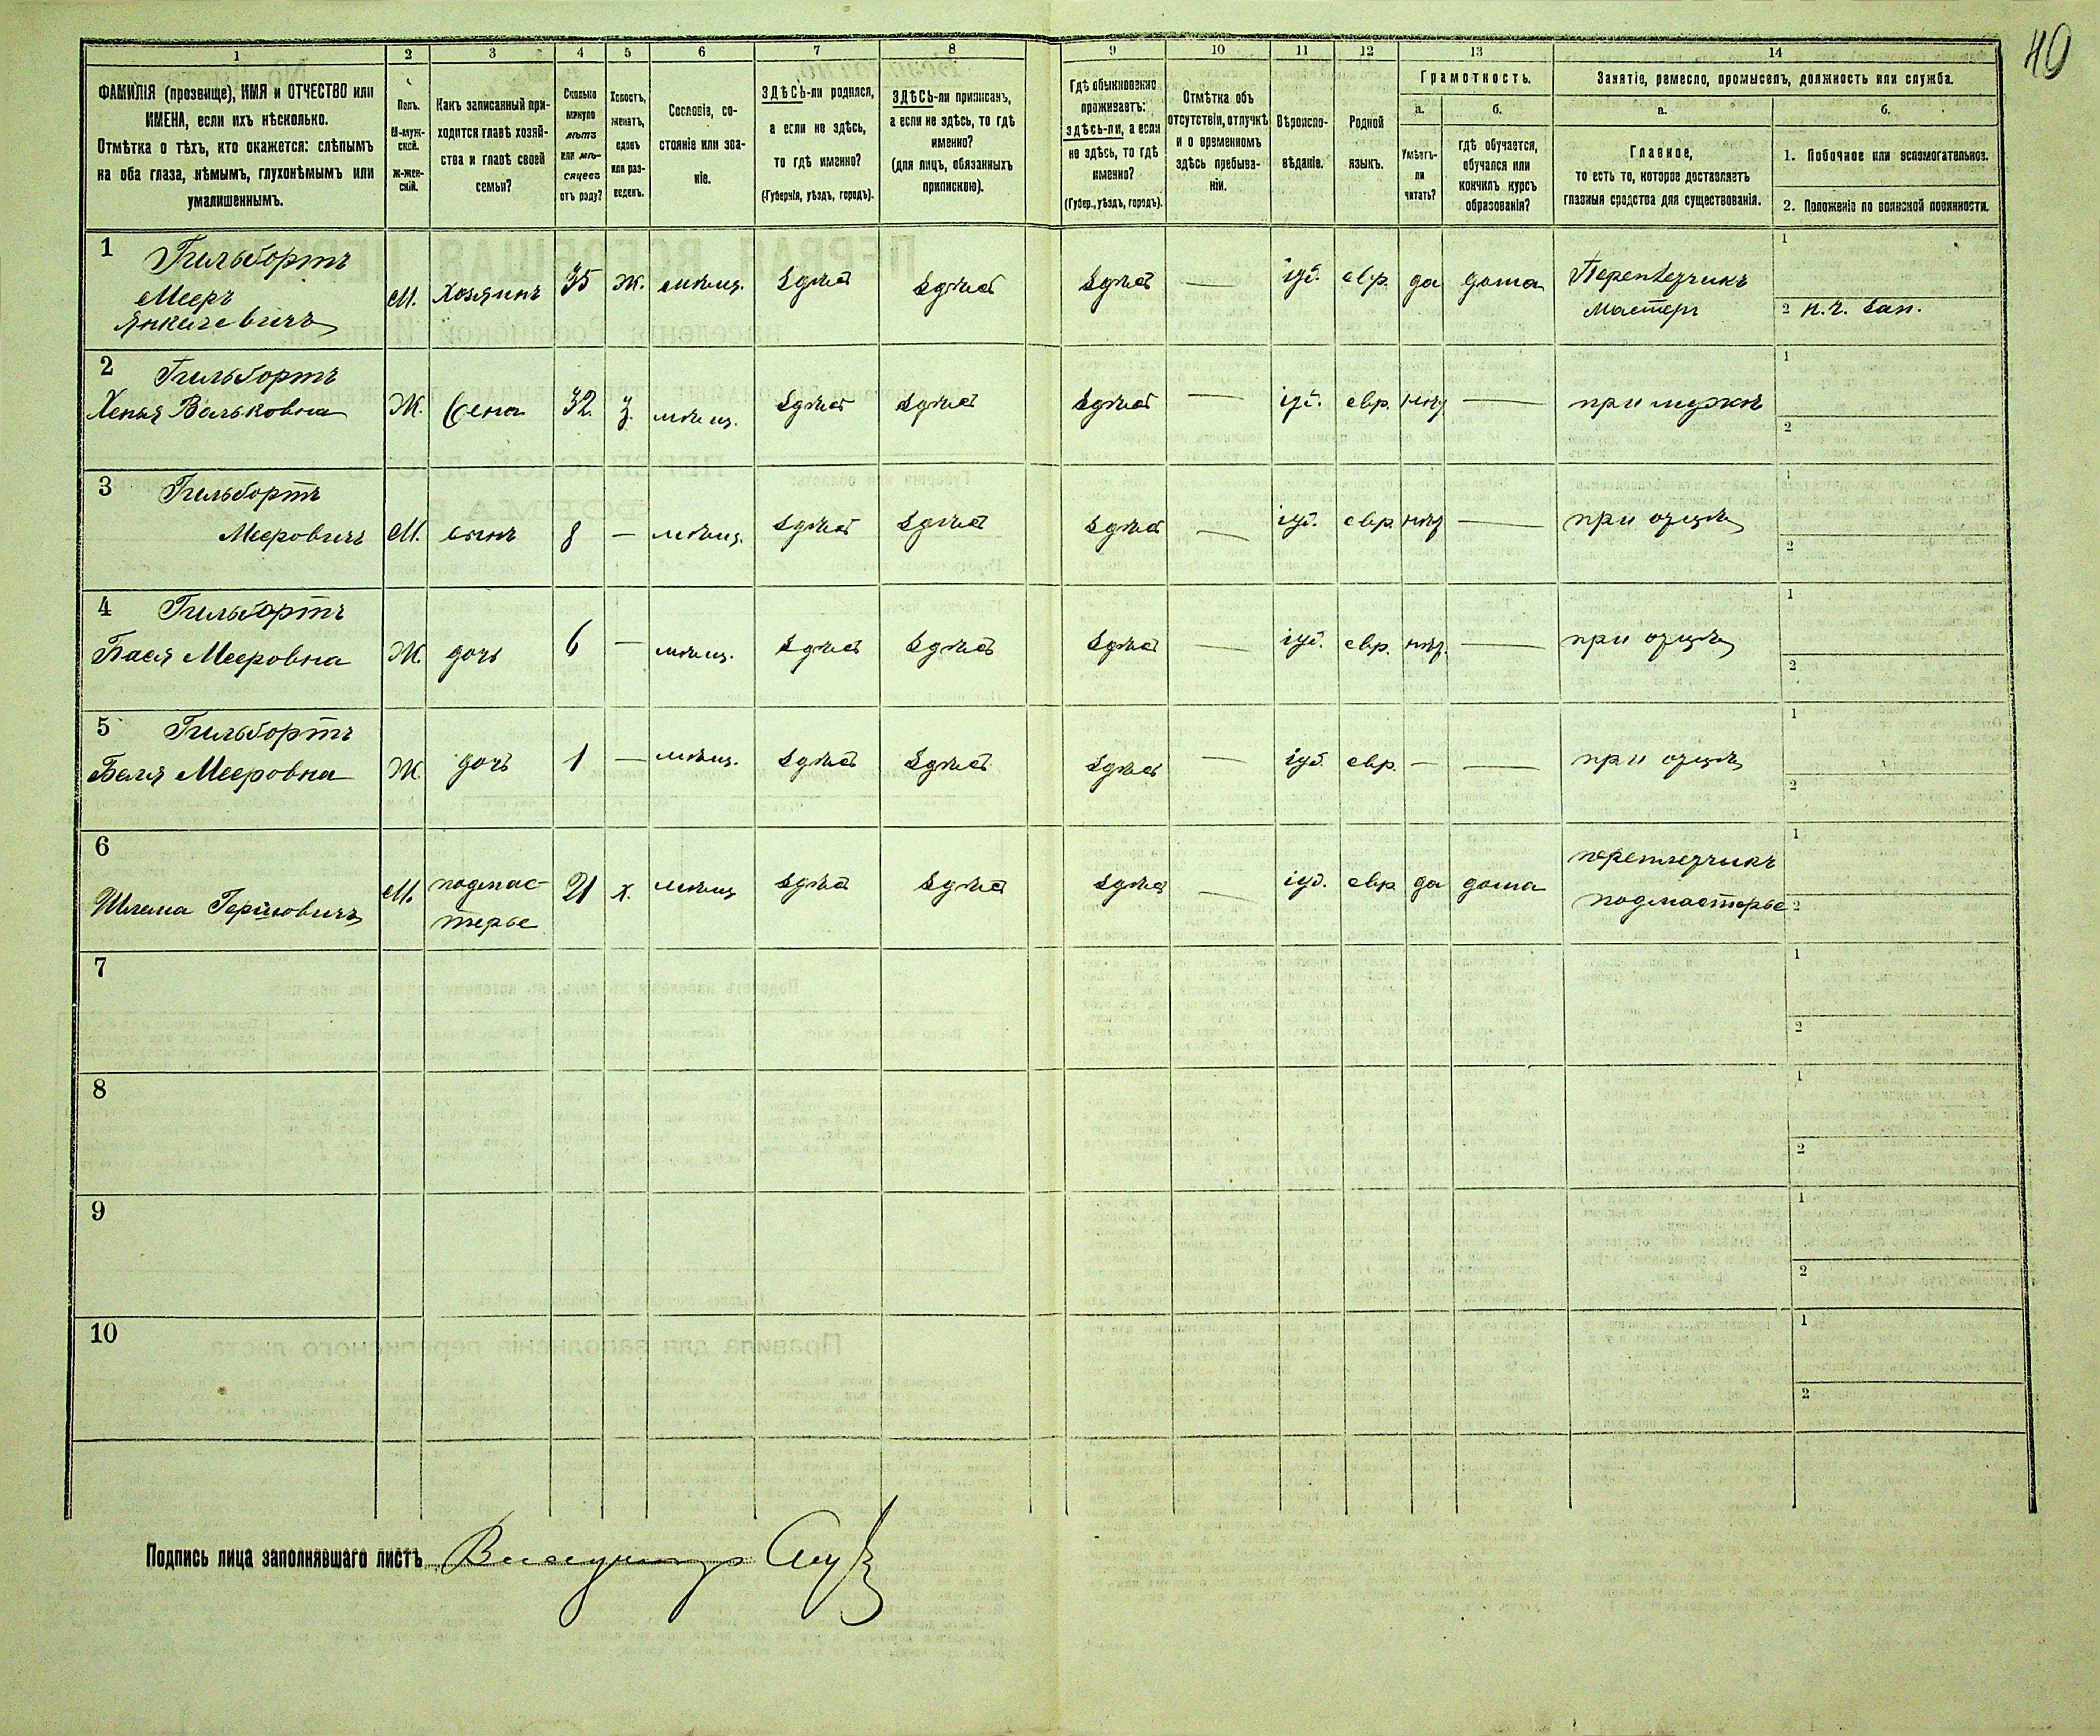 40
1 2 3 4 5 6 7 8 9 10 11 12 13 14
ФАМИЛІЯ (прозвище), ИМЯ и ОТЧЕСТВО или
ИМЕНА, если ихъ нѣсколько.
Отмѣтка о тѣхъ, кто окажется: слѣпымъ
на оба глаза, нѣмымъ, глухонѣмымъ или
умалишеннымъ.
Полъ.
М-муж-
ской.
ж-жен-
скій.
Какъ записанный при-
ходится главѣ хозяй-
ства и главѣ своей
семьи?
Сколько
минуло
лѣтъ
или мѣ-
сяцевъ
отъ роду?
Холостъ,
женатъ,
вдовъ
или раз-
веденъ.
Сословіе, со-
стояніе или зва-
ніе.
ЗДѢСЬ-ли родился,
а если не здѣсь,
то гдѣ именно?
(Губернія, уѣздъ, городъ).
ЗДѢСЬ-ли приписанъ,
а если не здѣсь, то гдѣ
именно?
(для лицъ, обязанныхъ
припискою).
Гдѣ обыкновенно
проживаетъ:
здѣсь-ли, а если
не здѣсь, то гдѣ
именно?
(Губер., уѣздъ, городъ).
Отмѣтка объ
отсутствіи, отлучкѣ
и о временномъ
здѣсь пребыва-
ніи.
Вѣроиспо-
вѣданіе.
Родной
языкъ.
Грамотность.
а.
Умѣетъ-
ли
читать?
б.
гдѣ обучается,
обучался или
кончилъ курсъ
образованія?
Занятіе, ремесло, промыселъ, должность или служба.
а.
Главное,
то есть то, которое доставляетъ
главныя средства для существованія.
б.
1. Побочное или вспомогательное.
2. Положеніе по воинской повинности.
1 Гильбортъ
Мееръ
Янкелевичъ М. хозяинъ 35 ж. мѣщ. здѣсь здѣсь здѣсь — іуд. евр. да дома Переплетчикъ
мастеръ
1
2 н.ч. зап.
2 Гильбортъ
Хенья Вольковна Ж. жена 32. з. мѣщ. здѣсь здѣсь здѣсь — іуд. евр. нѣт — при мужѣ
1
2
3 Гильбортъ
Мееровичъ М. сынъ 8 — мѣщ. здѣсь здѣсь здѣсь — іуд. евр. нѣт — при отцѣ
1
2
4 Гильбортъ
Бася Мееровна Ж. дочь 6 — мѣщ. здѣсь здѣсь здѣсь — іуд. евр. нѣт. — при отцѣ
1
2
5 Гильбортъ
Беля Мееровна Ж. дочь 1 — мѣщ. здѣсь здѣсь здѣсь — іуд. евр. — — при отцѣ
1
2
6
Шлема Гершовичъ М. подмас-
терье 21 х. мѣщ здѣсь здѣсь здѣсь — іуд. евр да дома переплетчикъ
подмастерье
1
2
7
1
2
8
1
2
9
1
2
10
1
2
Подпись лица заполнявшаго листъ